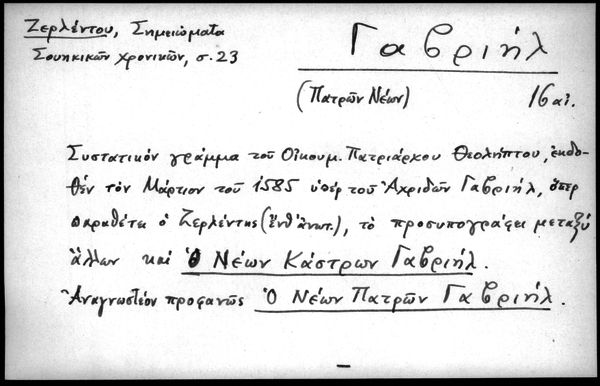 Ζερλέντου, Σημειώματα
Σουηκικῶν χρονικῶν, σ. 23
Γαβριήλ
(Πατρῶν Νέων)
16 αἰ.
Συστατικόν γράμμα τοῦ Οἰκουμ. Πατριάρχου Θεολήπτου, ἐκδο-
θέν τόν Μάρτιον τοῦ 1585 ὑπέρ τοῦ Ἀχριδῶν Γαβριήλ, ὅπερ
παραθέτει ὁ Ζερλέντης (ἔνθ' ἀνωτ.), τό προσυπογράφει μεταξύ
ἄλλων καί Ὁ Νέων Κάστρων Γαβριήλ.
Ἀναγνωστέον προφανῶς Ὁ Νέων Πατρῶν Γαβριήλ.